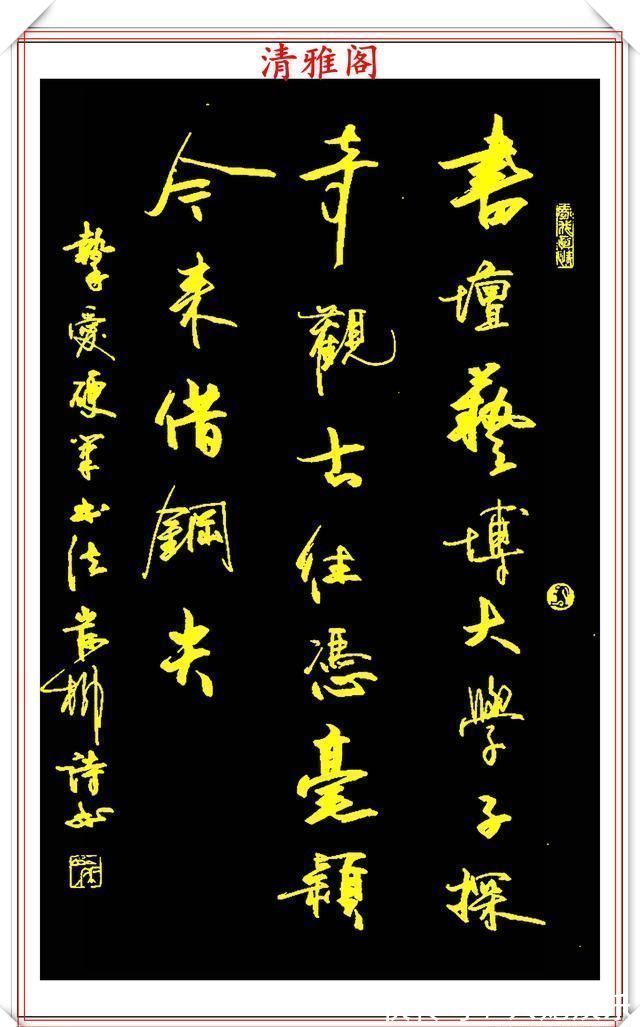 清雅阁
書壇藝博大學子探
奇觀古往憑毫穎
今来借鋼尖
摯愛硬筆书法崇柳詩书